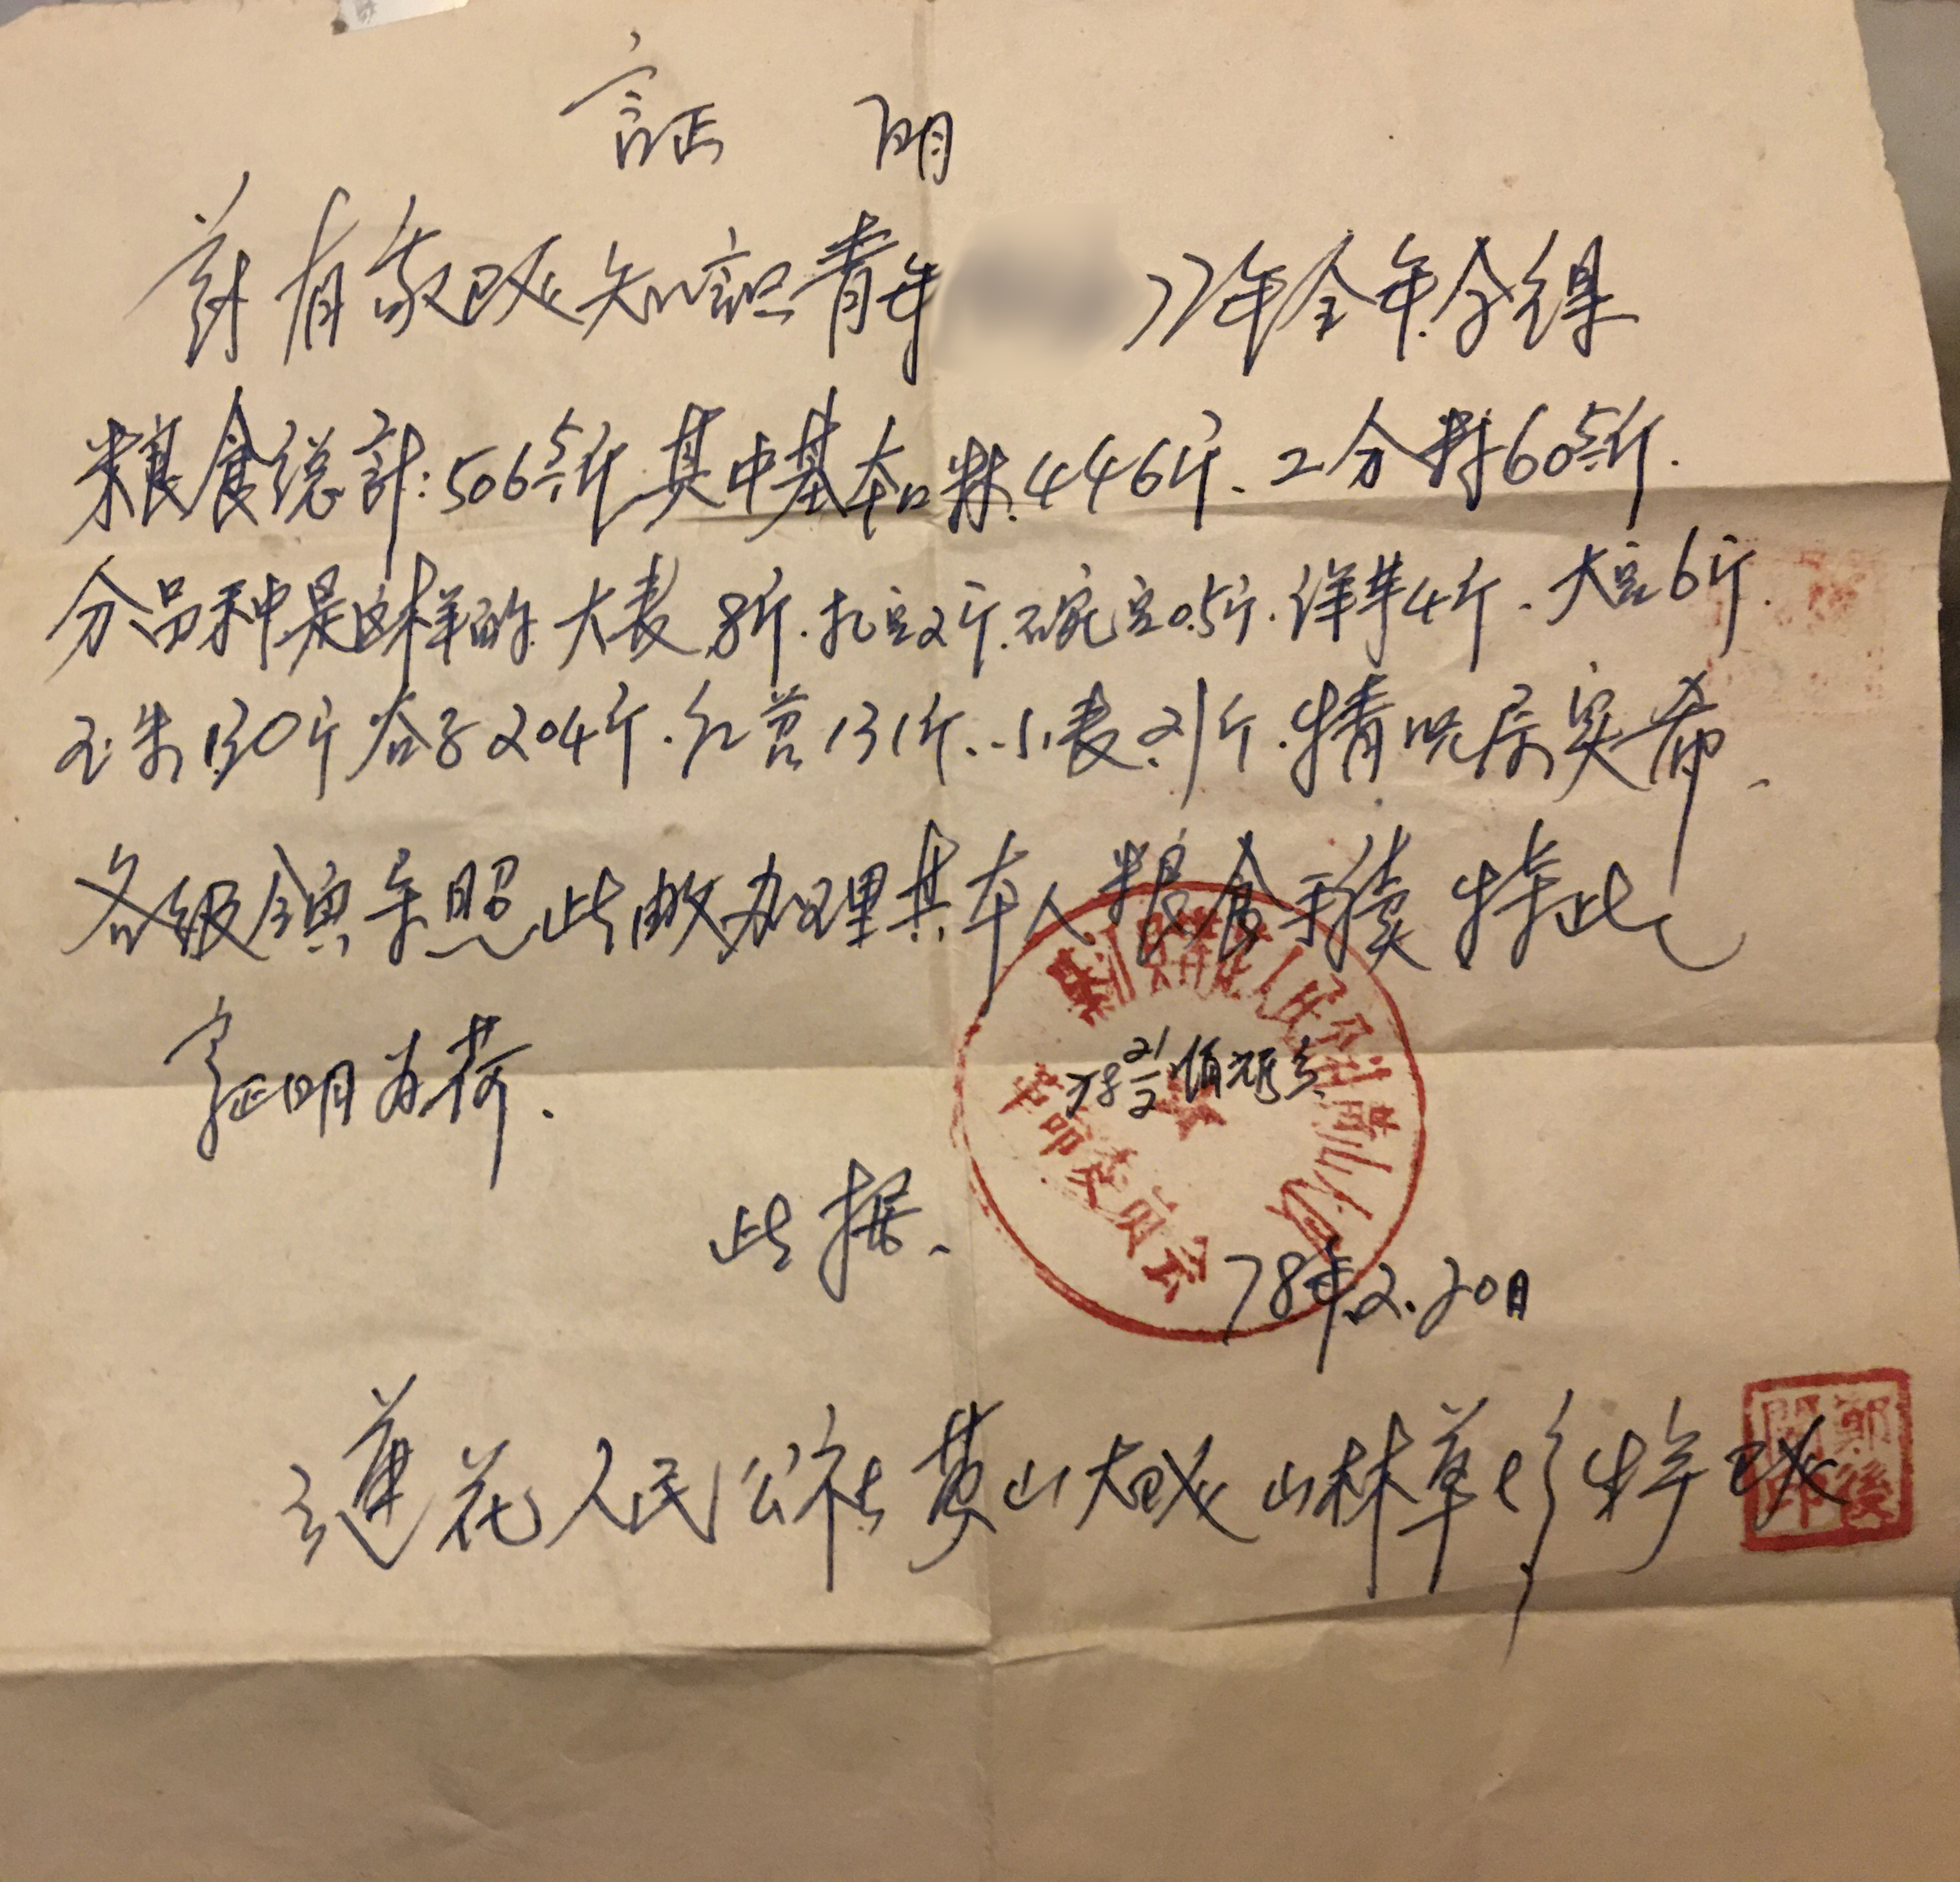 証明
兹有敝队知识青年 77年全年分得
粮食总計:506.5斤其中基本口粮446斤、工分粮60.5斤.
分品种是这样的 大麦8斤.扎豆2斤.碗豆0.5斤.洋芋4斤.大豆6斤.
玉米130斤谷子204斤.红苕131斤.小麦21斤.情况属实希
各级領导照此数办理其本人粮食手续 特此
証明为荷.
78 21/2
此据.
革命委员会
78年2.20日
蓮花人民公社英山大队山林草生产队
鄭後開印